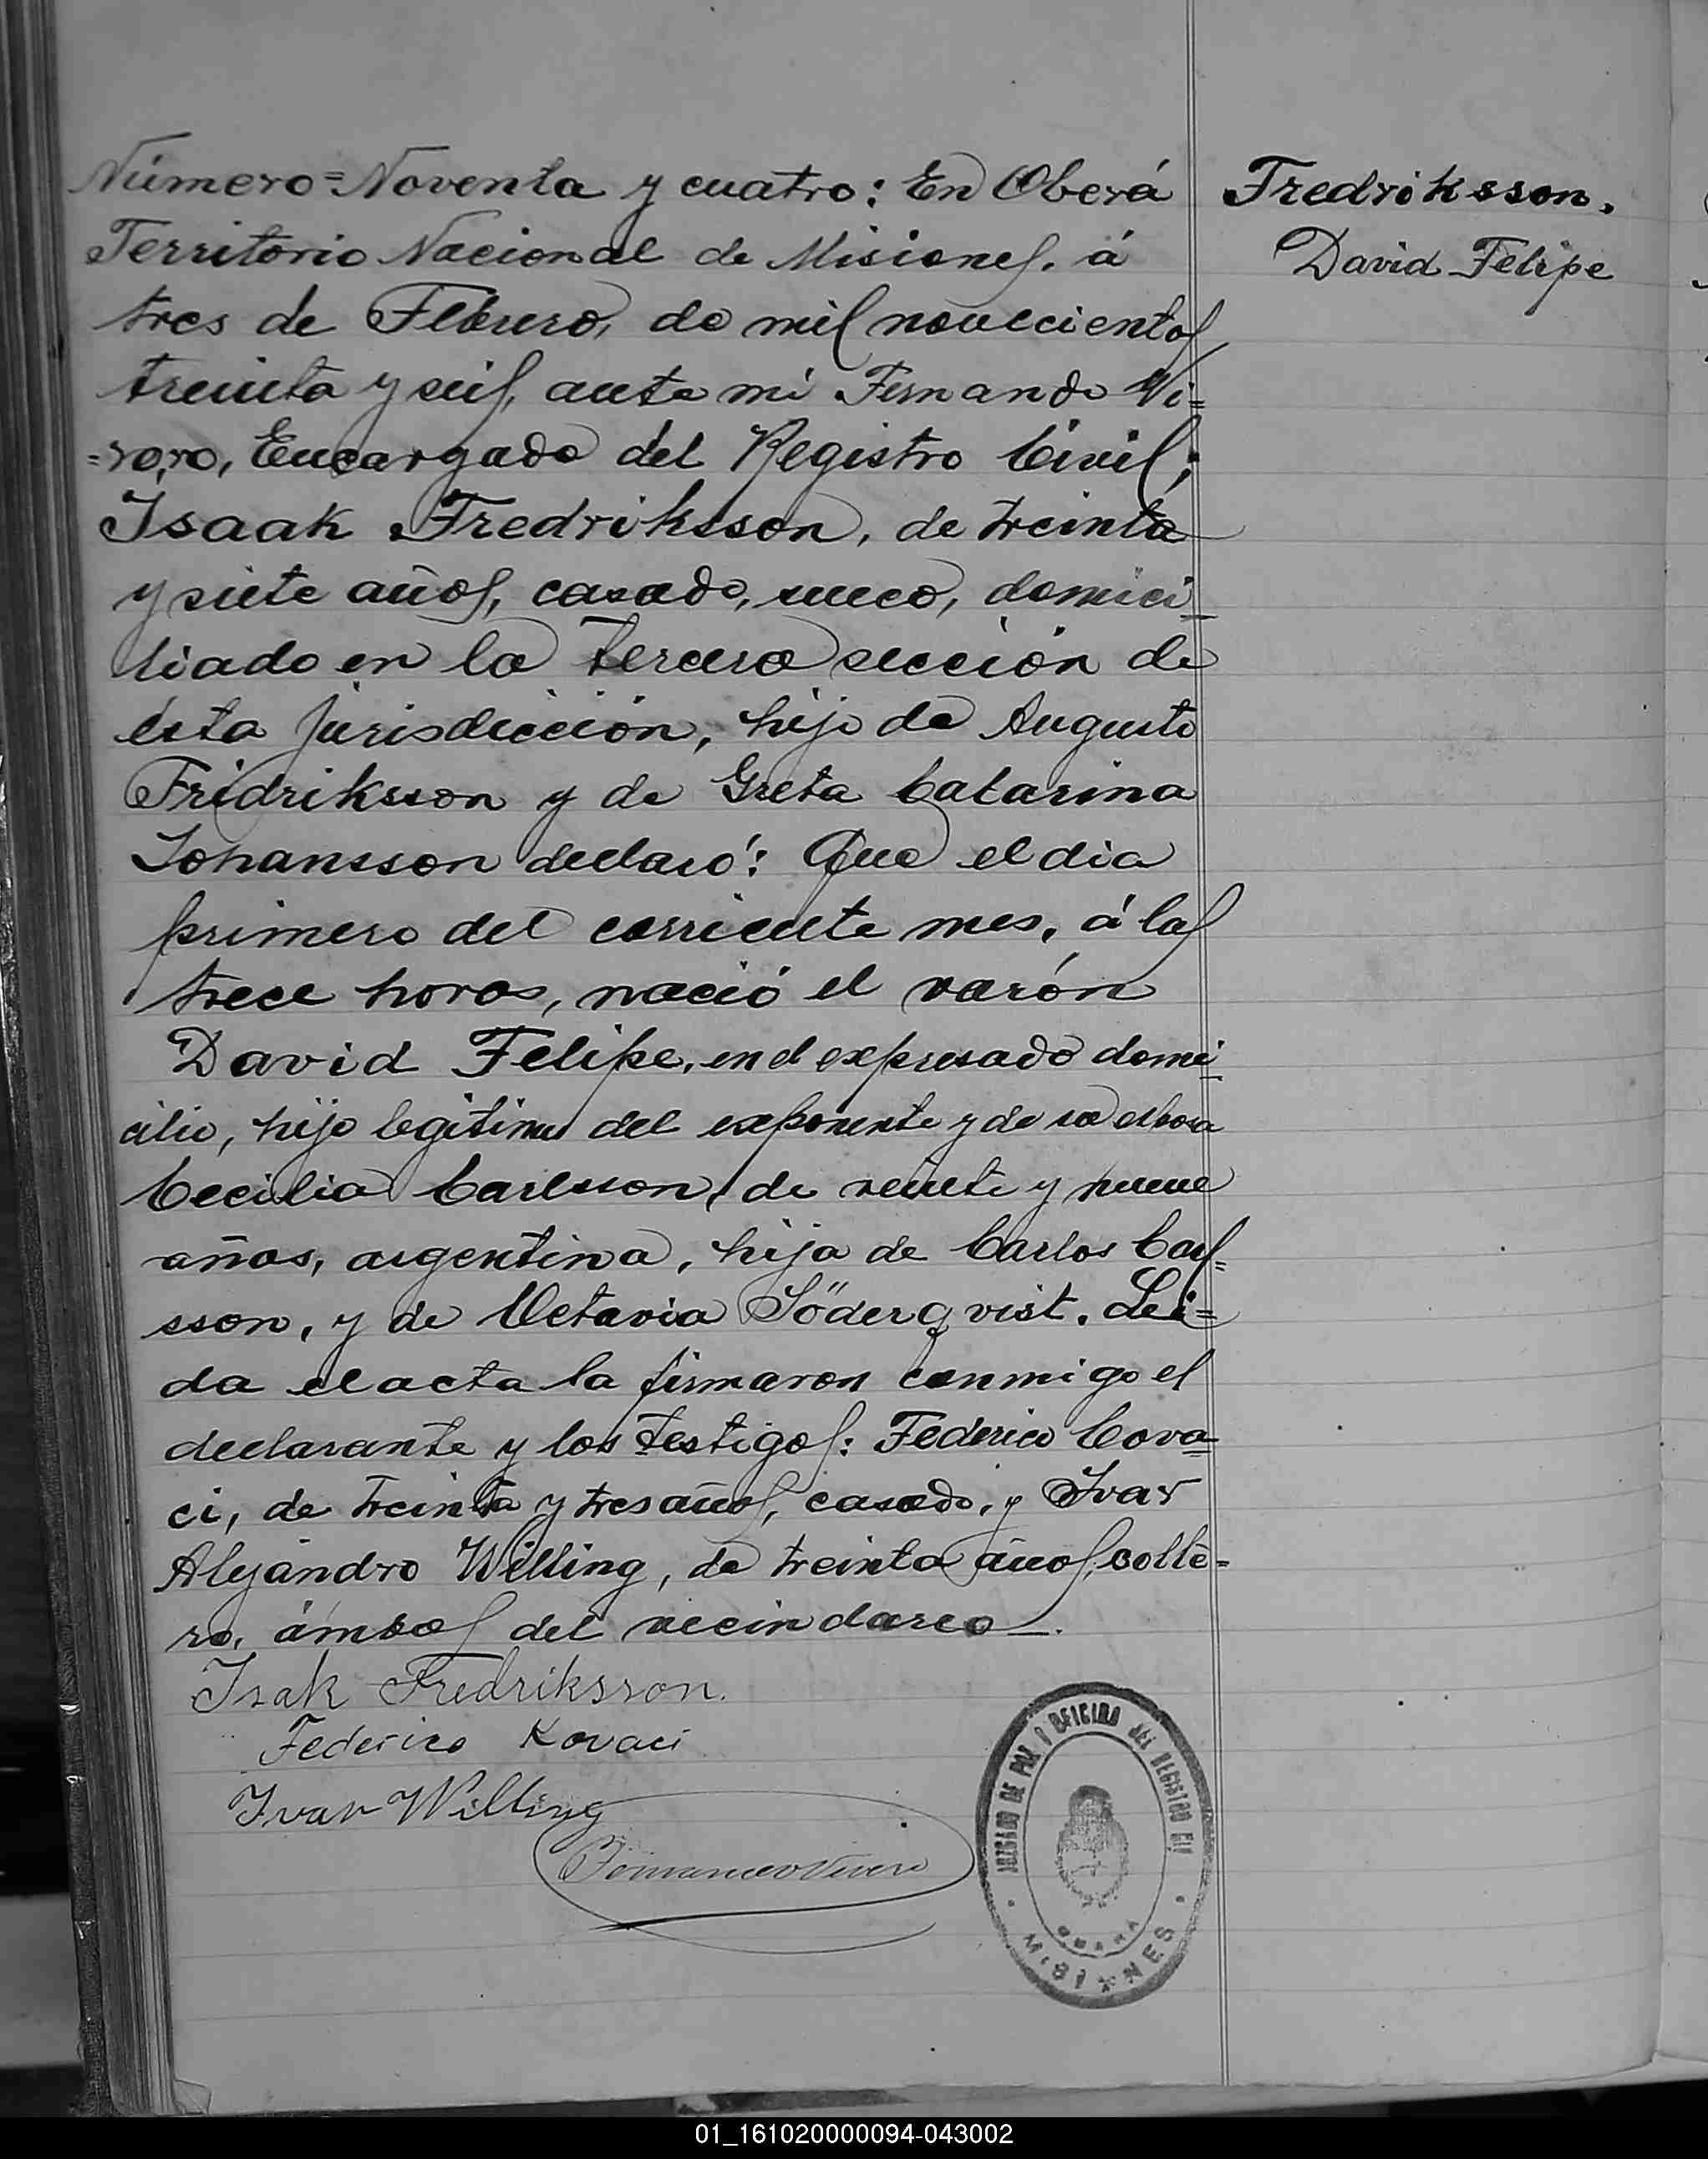 Número=Noventa y cuatro: En Oberá
Territorio Nacional de Misiones, á
tres de Febrero, de mil novecientos
treinta y seis, ante mi Fernando Vi=
=roro, Encargado del Registro Civil;
Isaak Fredriksson, de treinta
y siete años, casado, sueco, domici
liado en la tercera sección de
ésta jurisdicción, hijo de Augusto
Fridriksson y de Greta Catarina
Johansson declaró: Que el dia
primero del corriente mes, á las
trece horas, nació el varón
David Felipe, en el expresado domi
cilio, hijo legitimo del exponente y de su esposa
Cecilia Carlsson, de veinte y nueve
años, argentina, hija de Carlos Carl=
sson, y de Octavia Söderqvist. Lei=
da el acta la firmaron conmigo el
declarante y los testigos: Federico Cova
ci, de treinta y tres años, casado, y Ivar
Alejandro Willing, de treinta años, solte=
ro, ámbos del vecindario.
Isak Fredriksson.
Federico Kovaci
Ivar Willing
Fredriksson.
David Felipe
JUZGADO DE PAZ Y OFICINA DEL REGISTRO CIVIL
OBERÁ
MISIONES
01_161020000094-043002